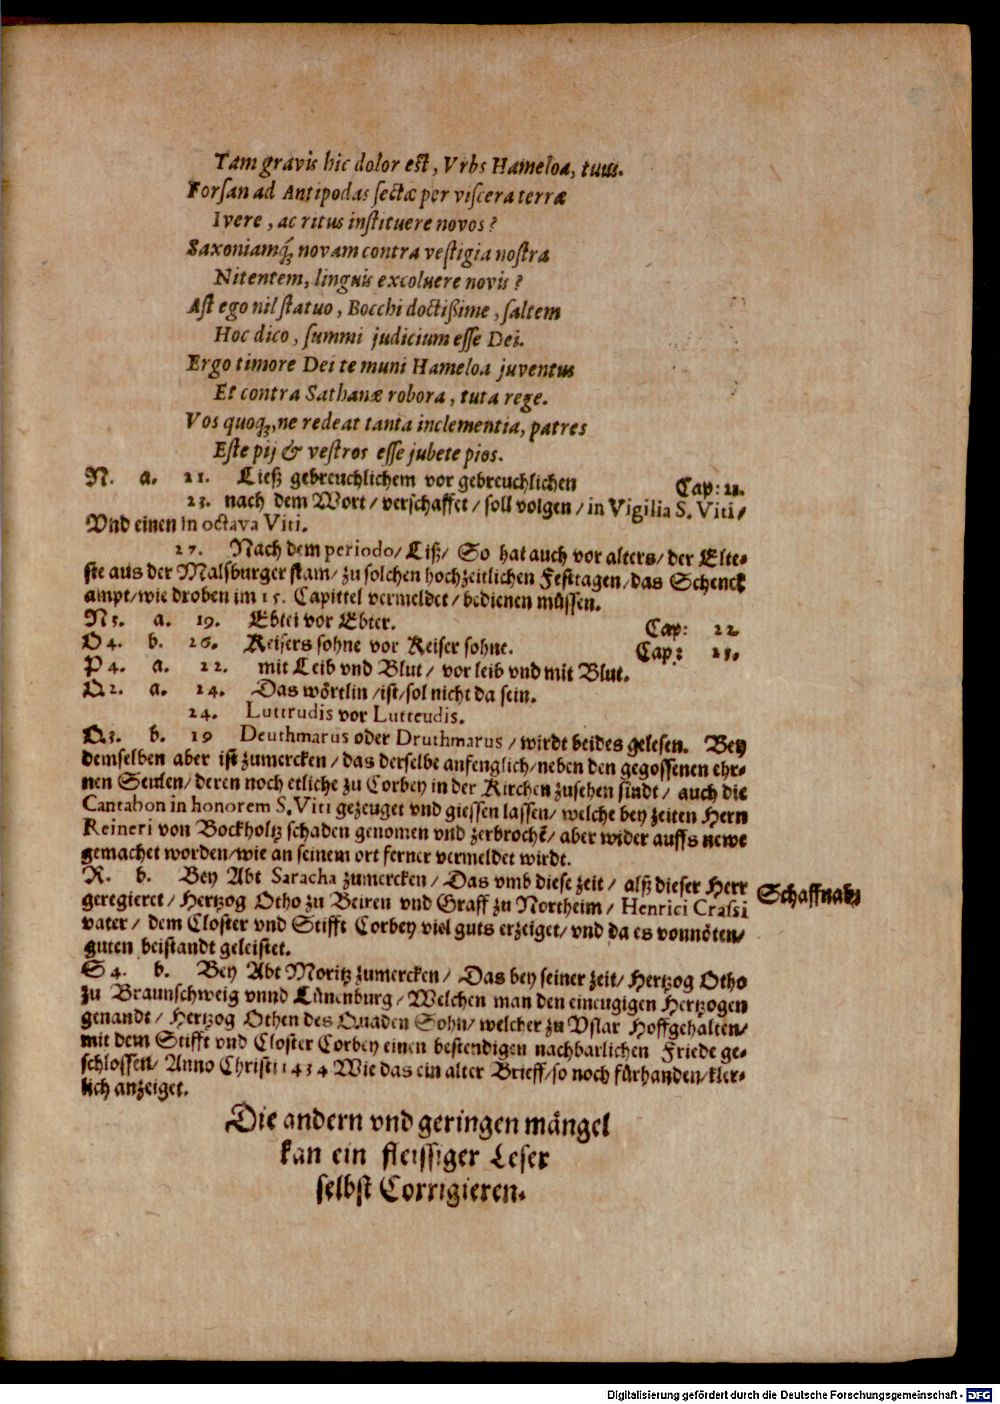 Tam gravis hic dolor est, Vrbs Hameloa, tuus.
Forſan ad Antipodas ſectæ per viſcera terræ
Ivere, ac ritus inſtituere novos?
Saxoniamq́; novam contra veſtigia noſtra
Nitentem, linguis excoluere novis?
Aſt ego nil ſtatuo, Bocchi doctißime, ſaltem
Hoc dico, ſummi judicium eſſe Dei.
Ergo timore Dei te muni Hameloa juventus
Et contra Sathanæ robora, tuta rege.
Vos quoq;, ne redeat tanta inclementia, patres
Eſte pij & veſtros eſſe jubete pios.
N. a. 21. Ließ gebreuchlichem vor gebreuchlichen Cap: 21.
23. nach dem Wort / verſchaffet / ſoll volgen / in Vigilia S. Viti /
Vnd einen in octava Viti.
27. Nach dem periodo / Liß / So hat auch vor alters / der Elte-
ſte aus der Malsburger ſtam / zu ſolchen hochzeitlichen Feſttagen / das Schenck
ampt / wie droben im 15. Capittel vermeldet / bedienen müſſen.
N3. a. 19. Ebtei vor Ebter. Cap: 22.
O4. b. 26. Keiſers ſohne vor Keiſer ſohne. Cap: 25.
P4. a. 22. mit Leib vnd Blut / vor leib vnd mit Blut.
Q2. a. 14. Das wörtlin / iſt / ſol nicht da ſein.
24. Luttrudis vor Lutteudis.
Q3. b. 19 Deuthmarus oder Druthmarus / wirdt beides geleſen. Bey
demſelben aber iſt zumercken / das derſelbe anfenglich / neben den gegoſſenen ehr-
nen Seulen / deren noch etliche zu Corbey in der Kirchen zuſehen ſindt / auch die
Cantabon in honorem S. Viti gezeuget vnd gieſſen laſſen / welche bey zeiten Hern
Reineri von Bockholtz ſchaden genomen vnd zerbrochẽ / aber wider auffs newe
gemachet worden / wie an ſeinem ort ferner vermeldet wirdt.
R. b. Bey Abt Saracha zumercken / Das vmb dieſe zeit / alß dieſer Herr
geregieret / Hertzog Otho zu Beiren vnd Graff zu Northeim / Henrici Craſſi
Schaffnab:
vater / dem Cloſter vnd Stifft Corbey viel guts erzeiget / vnd da es vonnöten /
guten beiſtandt geleiſtet.
S4. b. Bey Abt Moritz zumercken / Das bey ſeiner zeit / Hertzog Otho
zu Braunſchweig vnnd Lünenburg / Welchen man den eineugigen Hertzogen
genandt / Hertzog Othen des Quaden Sohn / welcher zu Vſlar Hoffgehalten /
mit dem Stifft vnd Cloſter Corbey einen beſtendigen nachbarlichen Friede ge-
ſchloſſen / Anno Chriſti 1434 Wie das ein alter Brieff / ſo noch fürhanden / kler-
lich anzeiget.
Die andern vnd geringen mängel
kan ein fleiſſiger Leſer
ſelbſt Corrigieren.
Digitalisierung gefördert durch die Deutsche Forschungsgemeinschaft - DFG